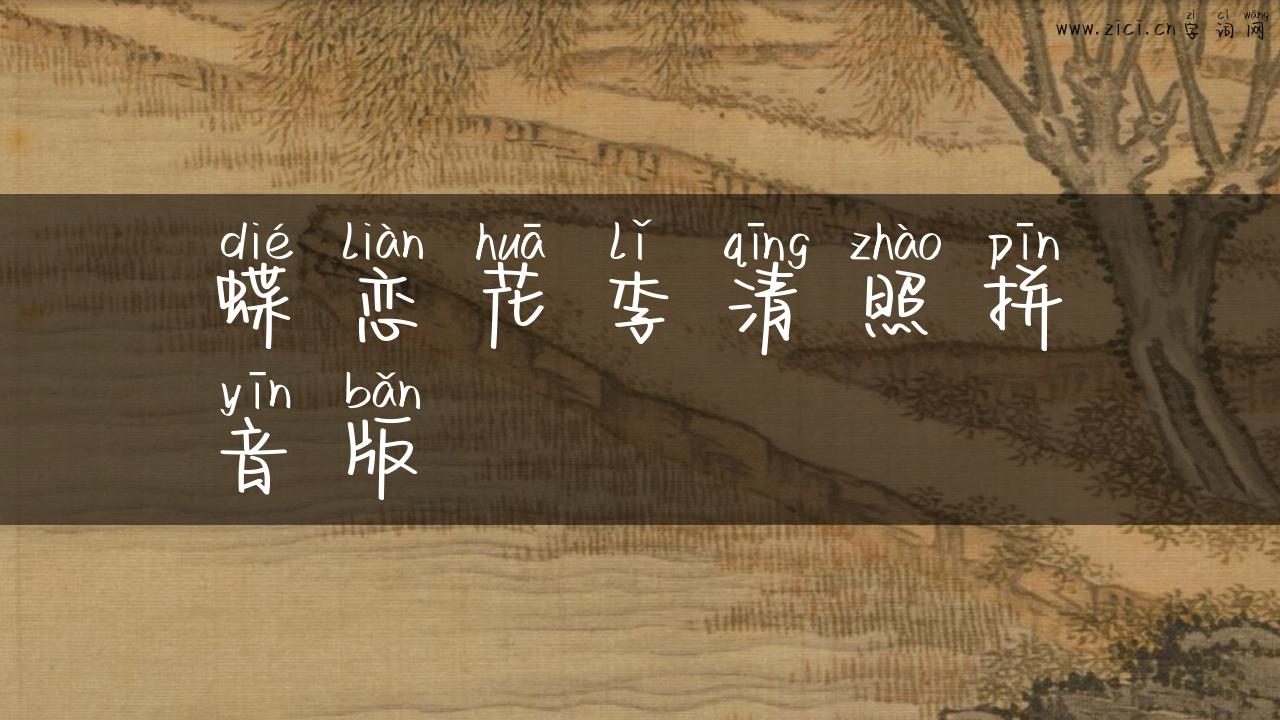 zì cí wǎng
www.zici.cn字词网
dié liàn huā lǐ qīng zhào pīn
蝶恋花李清照拼
yīn bǎn
音版